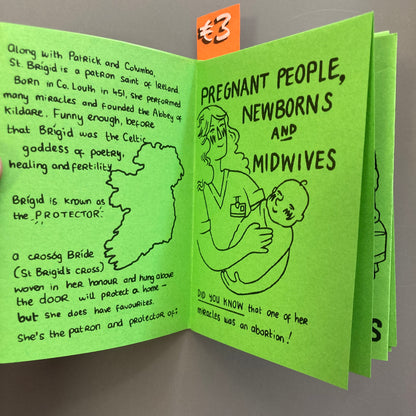 Along with Patrick and Columba,
St. Brigid is a patron saint of Ireland.
Born in Co. Louth in 451, she performed
many miracles and founded the Abbey of
Kildare. Funny enough, before
that Brigid was the Celtic
goddess of poetry,
healing and fertility
Brígid is known as
the PROTECTOR.
a crosóg Bríde
(St Brigid's cross)
woven in her honour and hung above
the door will protect a home -
but she does have favourites.
She's the patron and protector of:
€3
PREGNANT PEOPLE,
NEWBORNS
AND
MIDWIVES
DID YOU KNOW that one of her
miracles was an abortion!
S